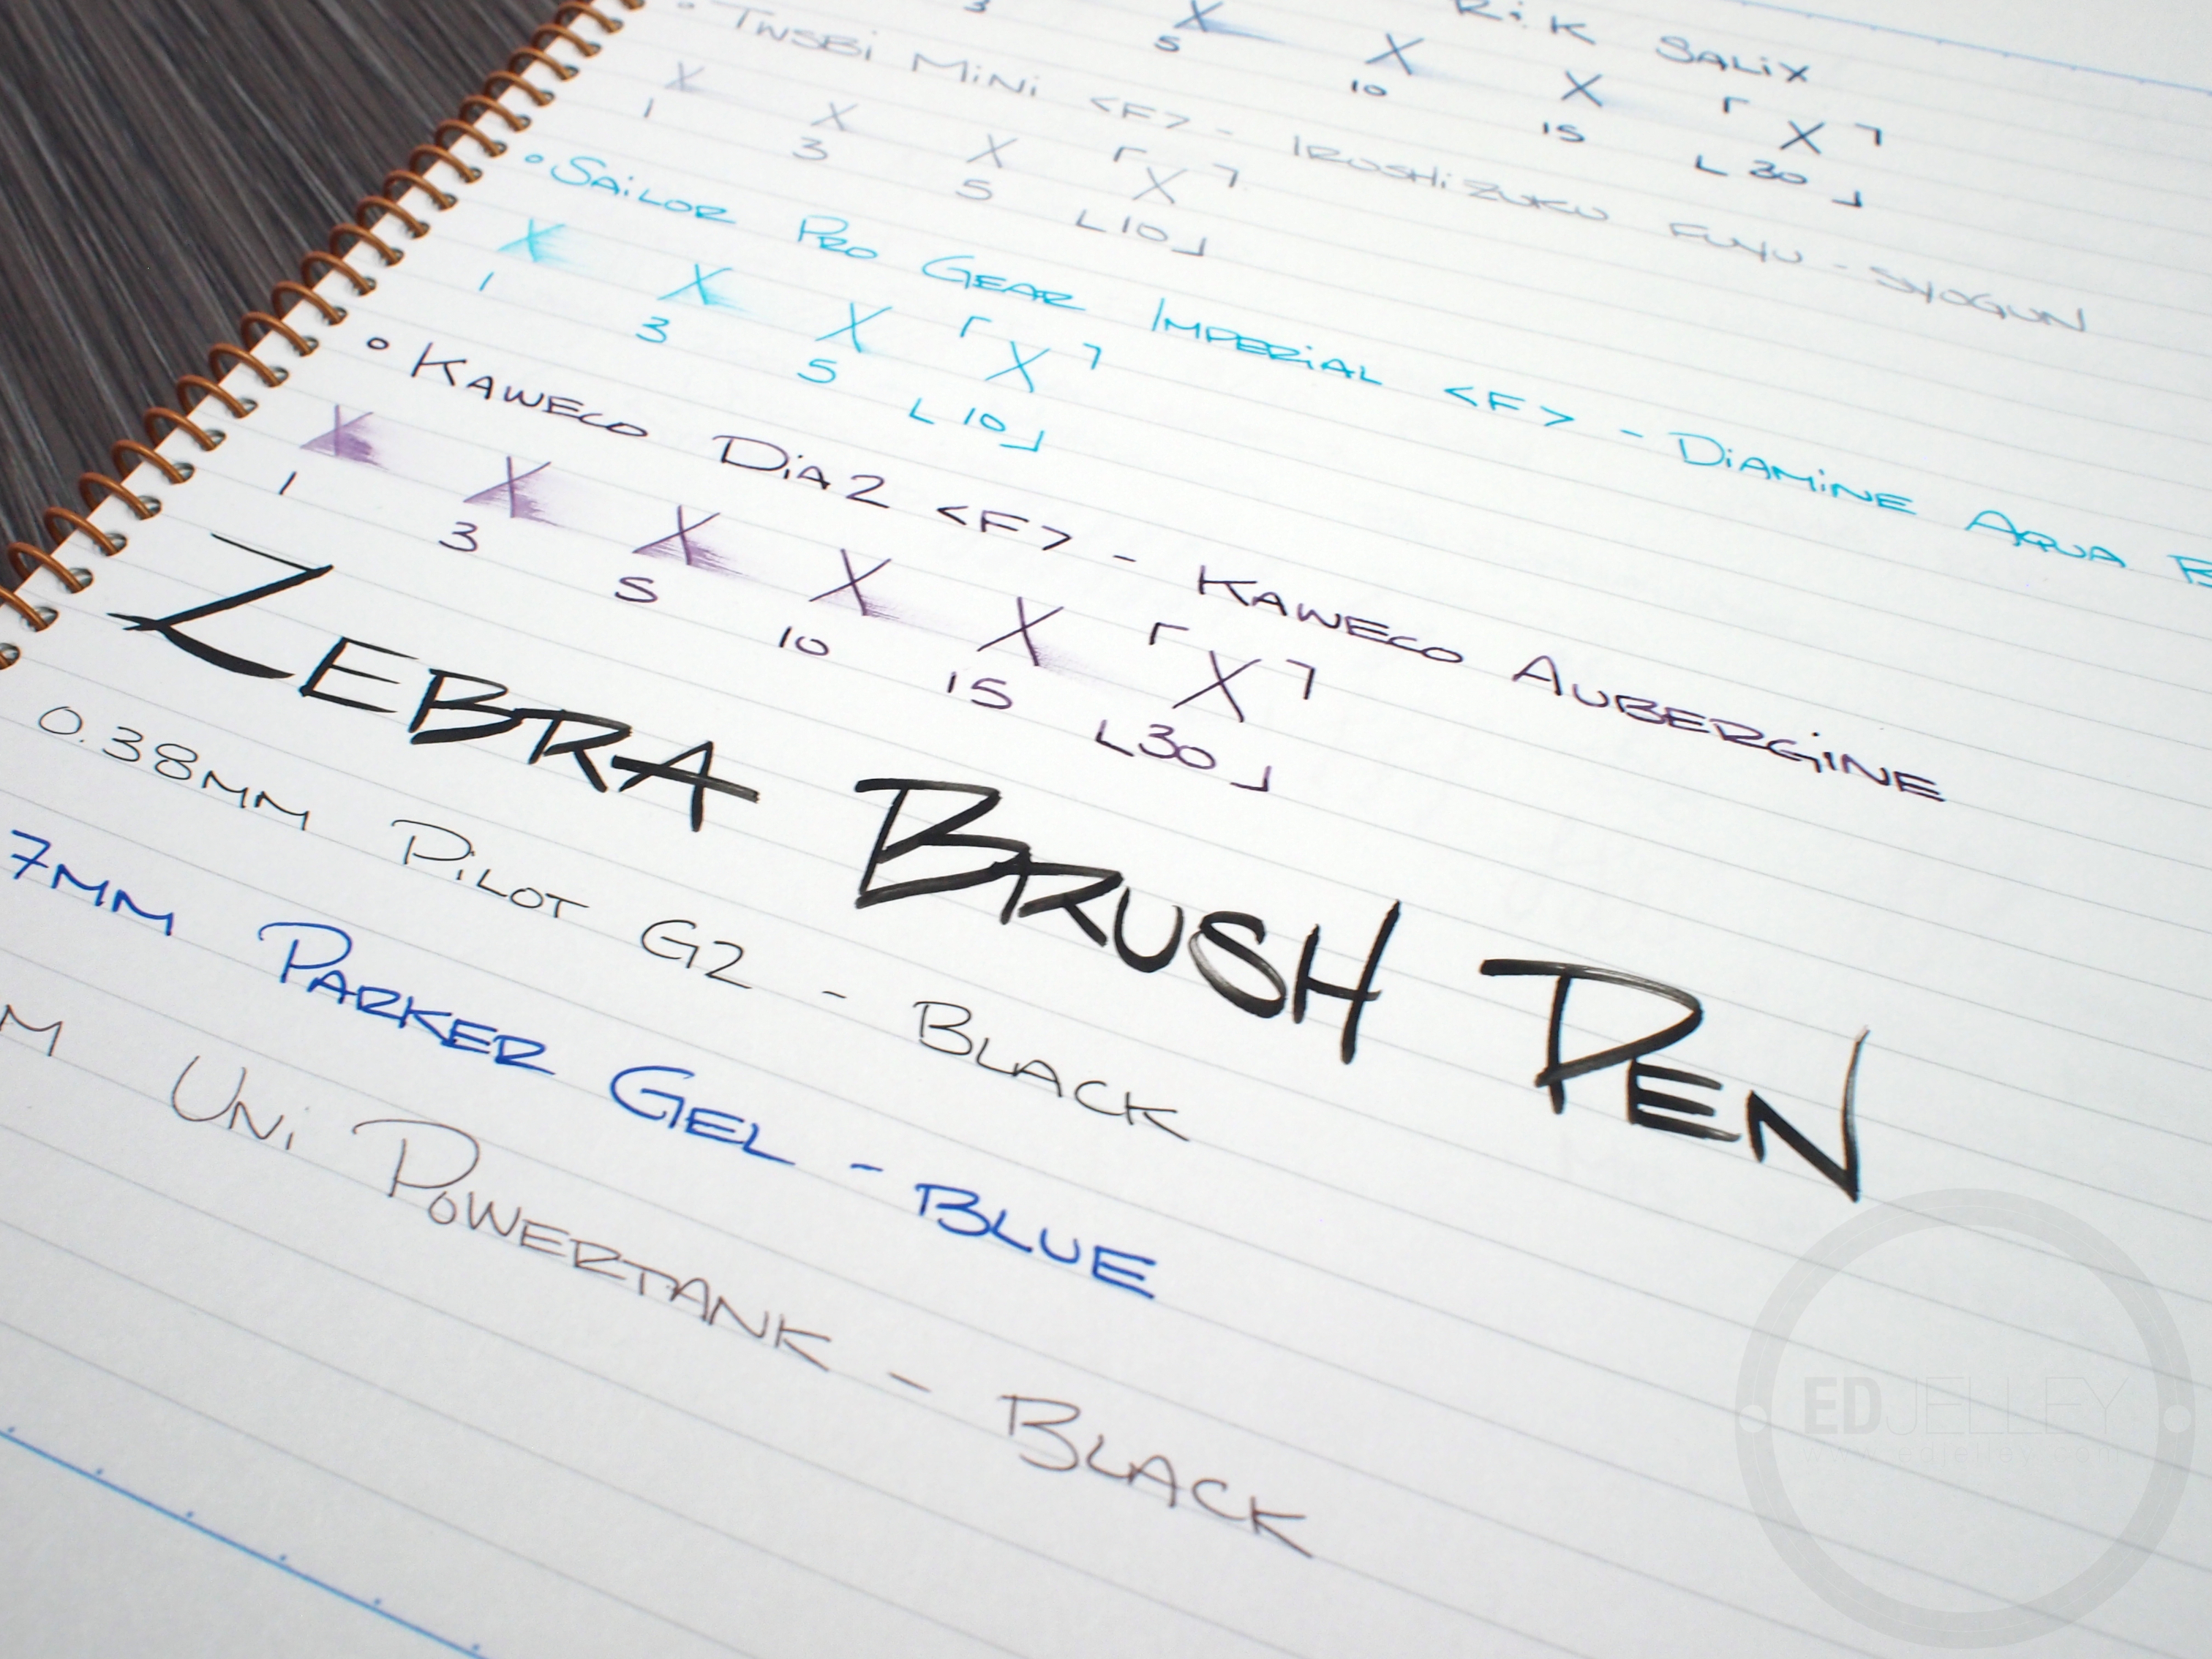 SALIX
3 X 5 X 10 X 15 ⌜X⌝ ⌞30⌟
TWSBI MINI <F> - IROSHIZUKU FUYU-SYOGUN
X X X ⌜X⌝
1 3 5 ⌞10⌟
SAILOR PRO GEAR IMPERIAL <F> - DIAMINE AQUA
X X X ⌜X⌝
1 3 5 ⌞10⌟
KAWECO DIA2 <F> - KAWECO AUBERGINE
X X X X X ⌜X⌝
1 3 5 10 15 ⌞30⌟
ZEBRA BRUSH PEN
0.38MM PILOT G2 - BLACK
7MM PARKER GEL - BLUE
M UNI POWERTANK - BLACK
EDJELLEY
www.edjelley.com